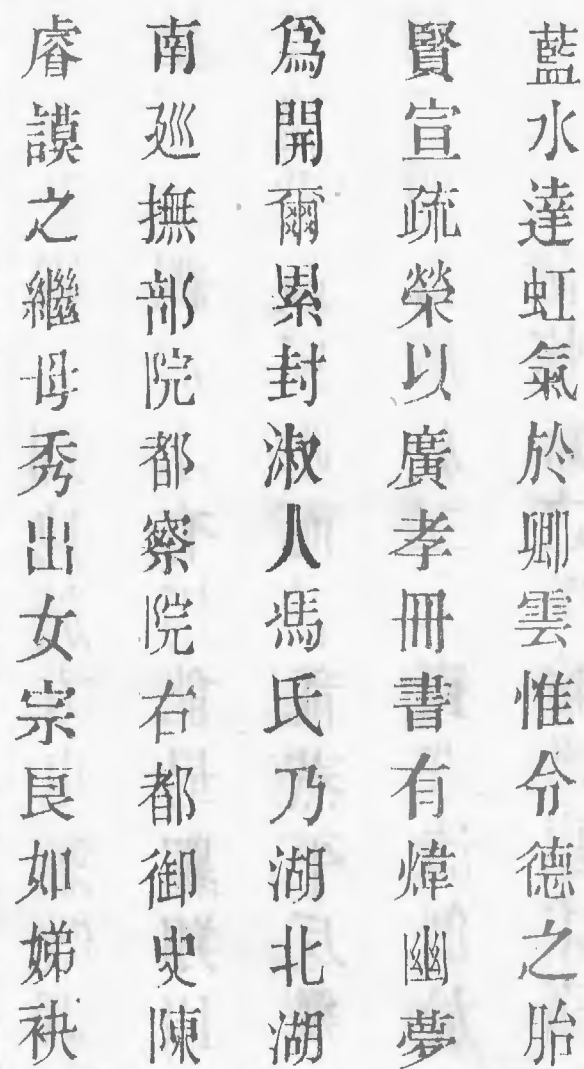 藍水達虹氣於卿雲惟令德之胎
賢宣疏榮以廣孝冊書有煒幽夢
爲開爾累封淑人馮氏乃湖北湖
南廵撫部院都察院右都御史陳
睿謨之繼母秀出女宗良如娣袂